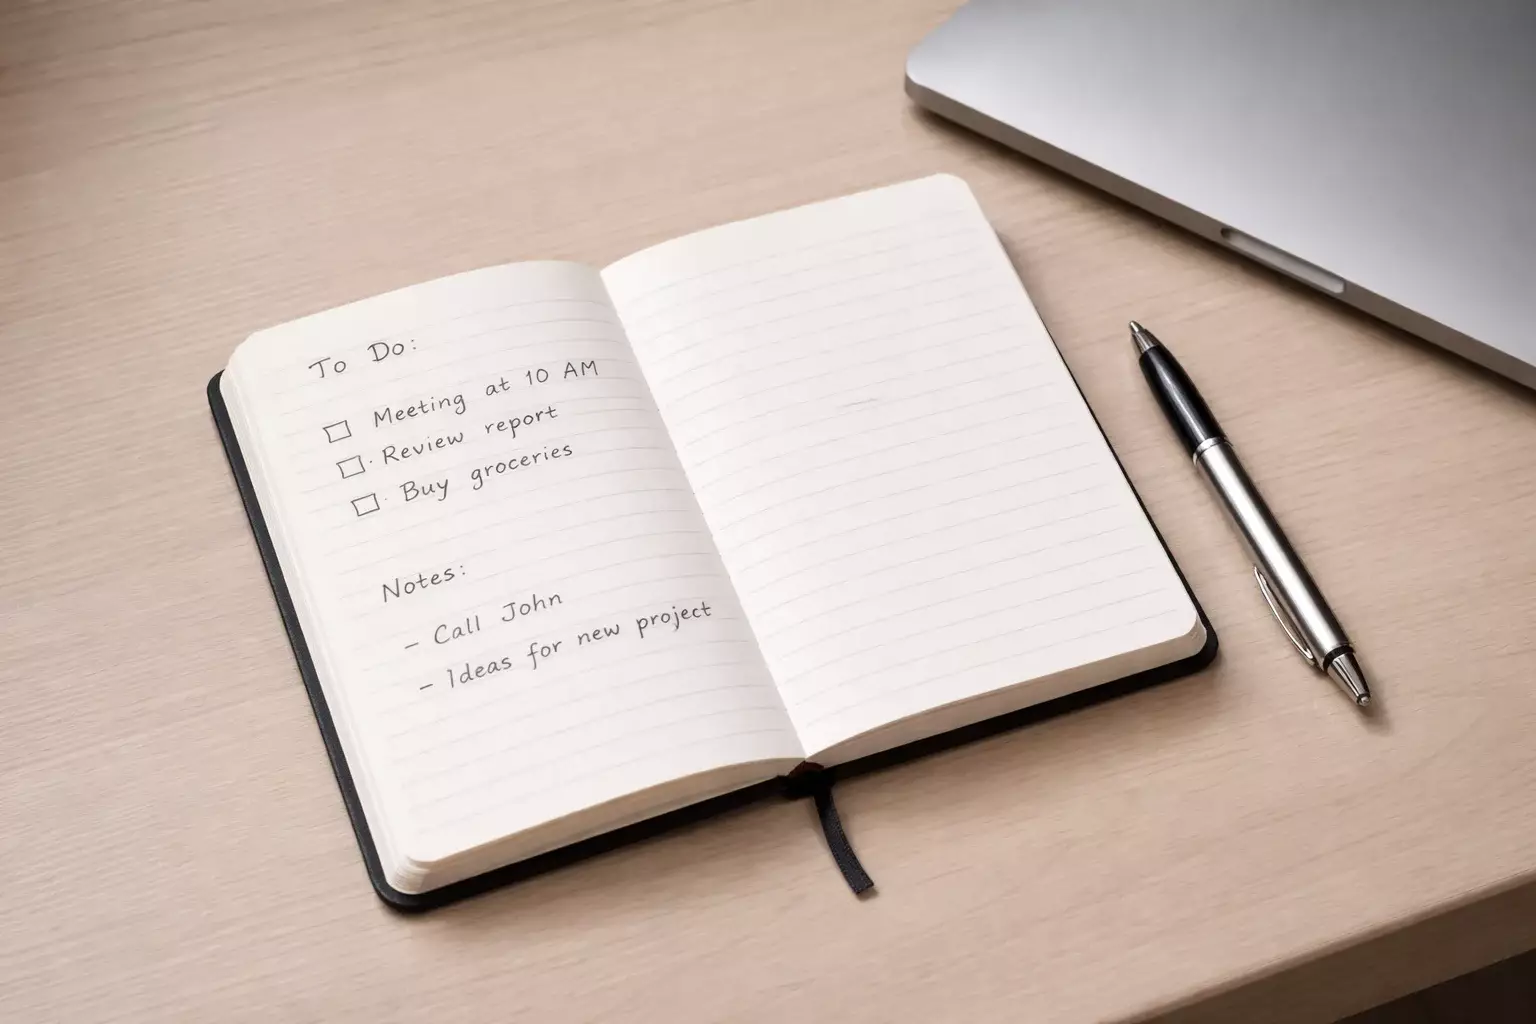 To Do:
☐ Meeting at 10 AM
☐ Review report
☐ Buy groceries
Notes:
- Call John
- Ideas for new project